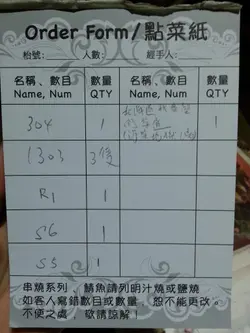 Order Form/點菜紙
枱號: 人數: 經手人:
名稱、數目 數量 名稱、數目 數量
Name, Num QTY Name, Num QTY
304 1
1
1303 3
R1 1
S6 1
S5 1
串燒系列: 鯖魚請列明汁燒或鹽燒
如客人寫錯數目或數量，恕不能更改。
不便之處, 敬請諒解！